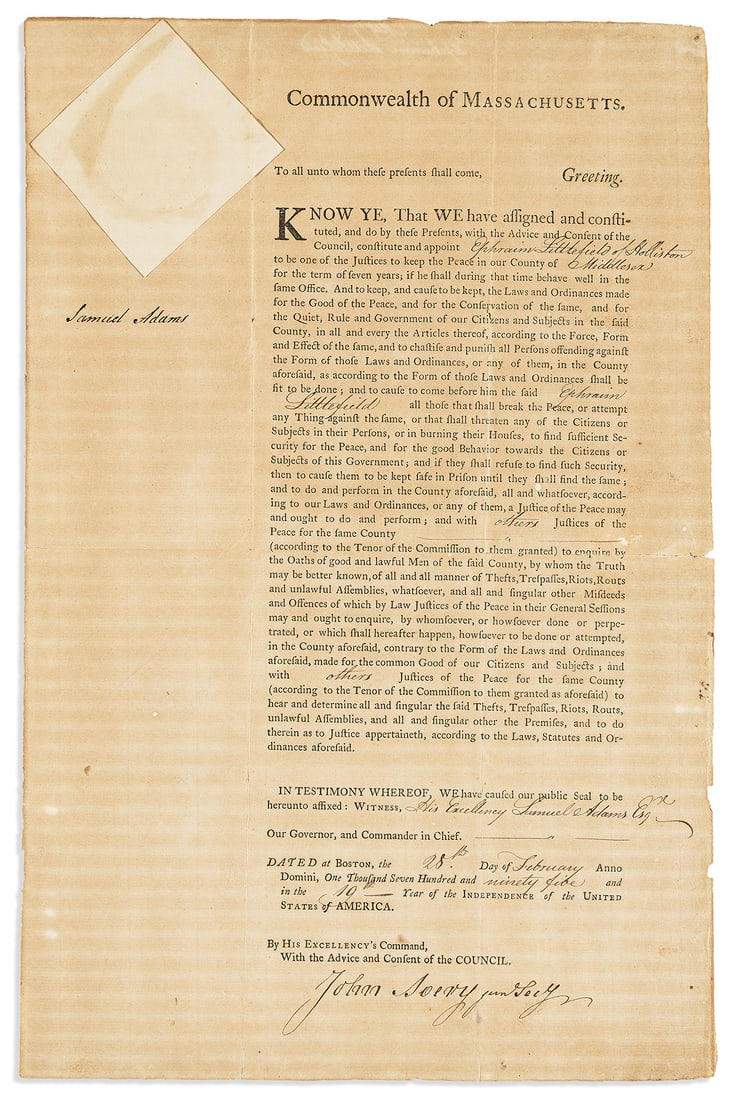 Commonwealth of MASSACHUSETTS.
To all unto whom theſe preſents ſhall come, Greeting.
KNOW YE, That WE have aſſigned and conſti-
tuted, and do by theſe Preſents, with the Advice and Conſent of the
Council, conſtitute and appoint Ephraim Littlefield of Holliston
to be one of the Juſtices to keep the Peace in our County of Middlesex
for the term of ſeven years; if he ſhall during that time behave well in the
ſame Office. And to keep, and cauſe to be kept, the Laws and Ordinances made
for the Good of the Peace, and for the Conſervation of the ſame, and for
Samuel Adams
the Quiet, Rule and Government of our Citizens and Subjects in the ſaid
County, in all and every the Articles thereof, according to the Force, Form
and Effect of the ſame, and to chaſtiſe and puniſh all Perſons offending againſt
the Form of thoſe Laws and Ordinances, or any of them, in the County
aforeſaid, as according to the Form of thoſe Laws and Ordinances ſhall be
fit to be done; and to cauſe to come before him the ſaid Ephraim
Littlefield all thoſe that ſhall break the Peace, or attempt
any Thing againſt the ſame, or that ſhall threaten any of the Citizens or
Subjects in their Perſons, or in burning their Houſes, to find ſufficient Se-
curity for the Peace, and for the good Behavior towards the Citizens or
Subjects of this Government; and if they ſhall refuſe to find ſuch Security,
then to cauſe them to be kept ſafe in Priſon until they ſhall find the ſame;
and to do and perform in the County aforeſaid, all and whatſoever, accord-
ing to our Laws and Ordinances, or any of them, a Juſtice of the Peace may
and ought to do and perform; and with others Juſtices of the
Peace for the ſame County
(according to the Tenor of the Commiſſion to them granted) to enquire by
the Oaths of good and lawful Men of the ſaid County, by whom the Truth
may be better known, of all and all manner of Thefts, Treſpaſſes, Riots, Routs
and unlawful Aſſemblies, whatſoever, and all and ſingular other Miſdeeds
and Offences of which by Law Juſtices of the Peace in their General Seſſions
may and ought to enquire, by whomſoever, or howſoever done or perpe-
trated, or which ſhall hereafter happen, howſoever to be done or attempted,
in the County aforeſaid, contrary to the Form of the Laws and Ordinances
aforeſaid, made for the common Good of our Citizens and Subjects; and
with others Juſtices of the Peace for the ſame County
(according to the Tenor of the Commiſſion to them granted as aforeſaid) to
hear and determine all and ſingular the ſaid Thefts, Treſpaſſes, Riots, Routs,
unlawful Aſſemblies, and all and ſingular other the Premiſes, and to do
therein as to Juſtice appertaineth, according to the Laws, Statutes and Or-
dinances aforeſaid.
IN TESTIMONY WHEREOF, WE have cauſed our public Seal to be
hereunto affixed: WITNESS, His Excellency Samuel Adams Esqr
Our Governor, and Commander in Chief.
DATED at BOSTON, the 28th Day of February Anno
Domini, One Thouſand Seven Hundred and ninety five and
in the 19th Year of the INDEPENDENCE of the UNITED
STATES of AMERICA.
By HIS EXCELLENCY's Command,
With the Advice and Conſent of the COUNCIL.
John Avery junr Secy